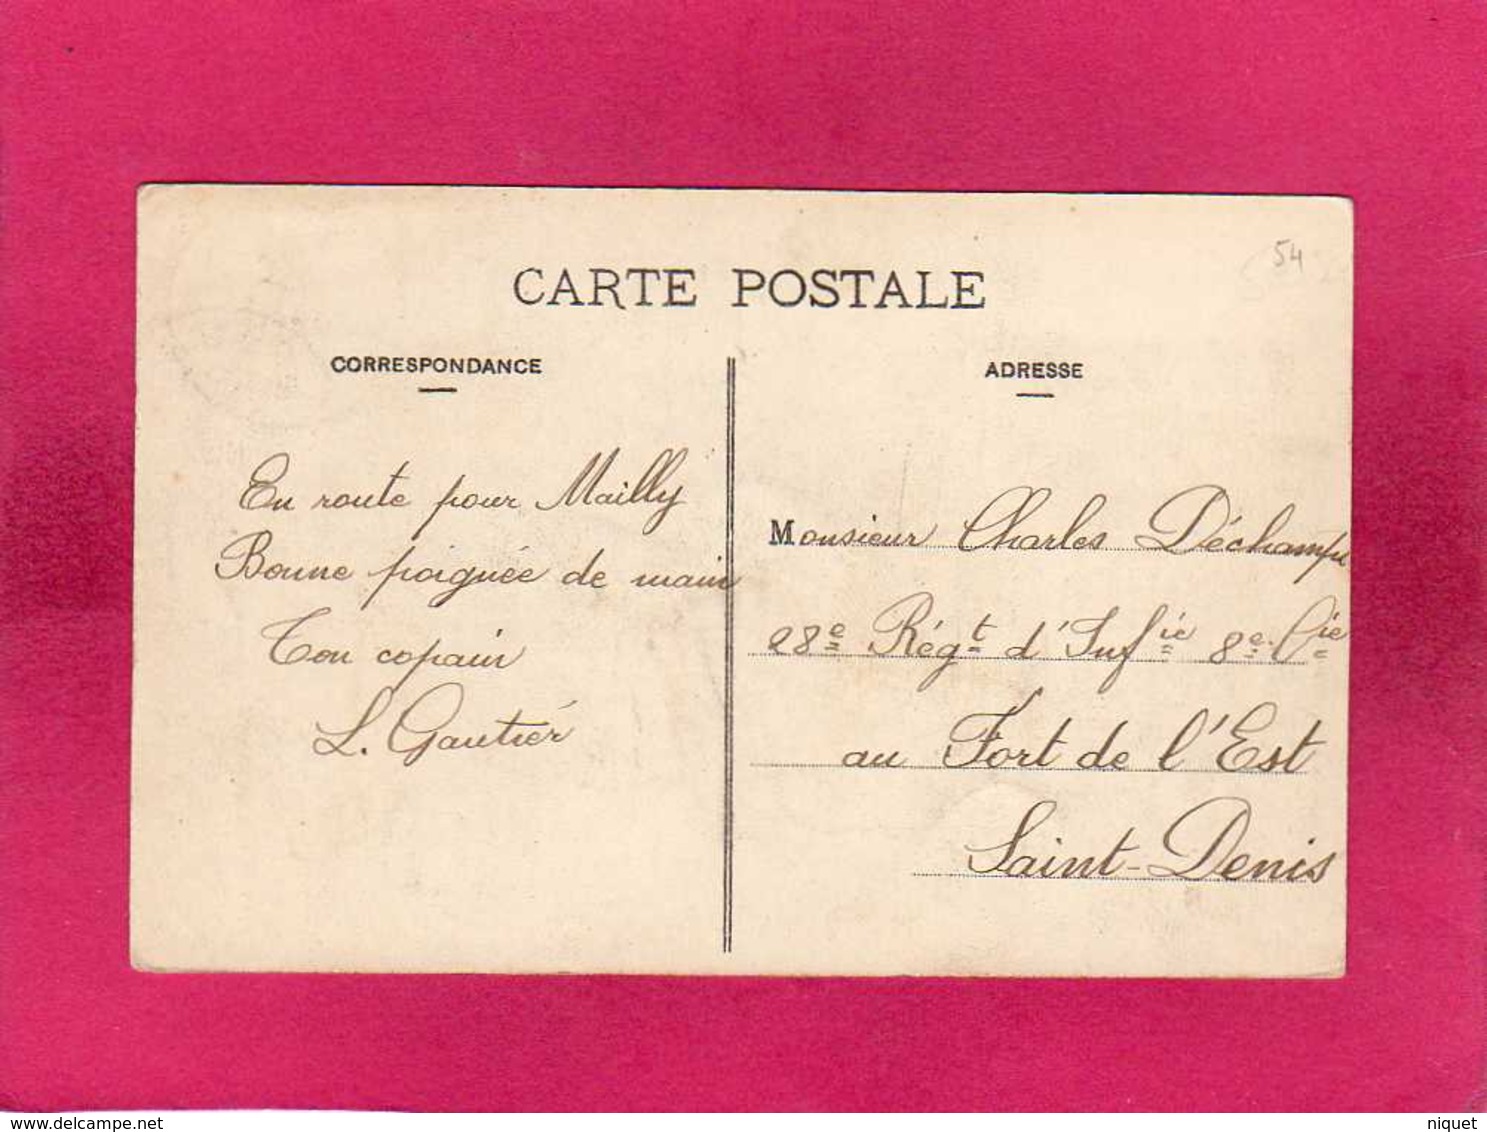 CARTE POSTALE
54
CORRESPONDANCE
En route pour Mailly
Bonne poignée de main
Ton copain
L. Gautier
ADRESSE
Monsieur Charles Déchamps
28e Régt d'Infie 8e Cie
au Fort de l'Est
Saint-Denis
delcampe.net
niquet